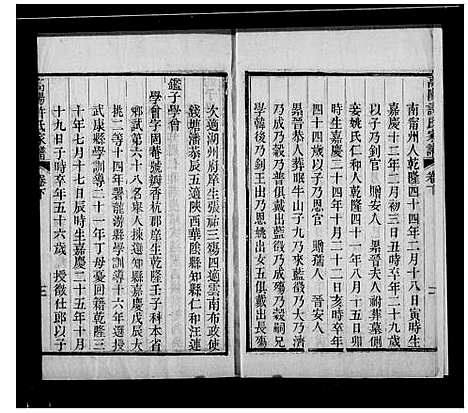 高陽許氏家譜 卷下
南甯州人乾隆四十四年二月十八日寅時生
嘉慶十二年二月初三日丑時卒年二十九歲
以子乃釗官 贈安人 累晉夫人祔葬墓側
妾姚氏仁和人乾隆四十一年八月十五日卯
時生嘉慶二十四年十月二十二日亥時卒年
四十四歲以子乃恩官 贈孺人 晉安人
累晉恭人葬眠牛山子九乃來藍榖乃大乃濟
乃成乃榖乃普俱戴出藍榖乃成殤乃榖嗣兄
學韓後乃釗王出乃恩姚出女五俱戴出長殤
次適湖州府庠生張 三殤四適雲南布政使
錢塘潘恭辰五適陝西華陰縣知縣仁和汪連
鑑子學會
學會字固菴號 香杭郡庠生乾隆壬子科本省
鄉試第六十八名舉人揀選知縣嘉慶戊辰大
挑二等十四年署龍游縣學訓導十六年選授
武康縣學訓導二十一年丁母憂回籍乾隆三
十年七月十七日辰時生嘉慶二十五年十月
十九日子時卒年五十六歲 授徵仕郎以子
高陽許氏家譜 卷下